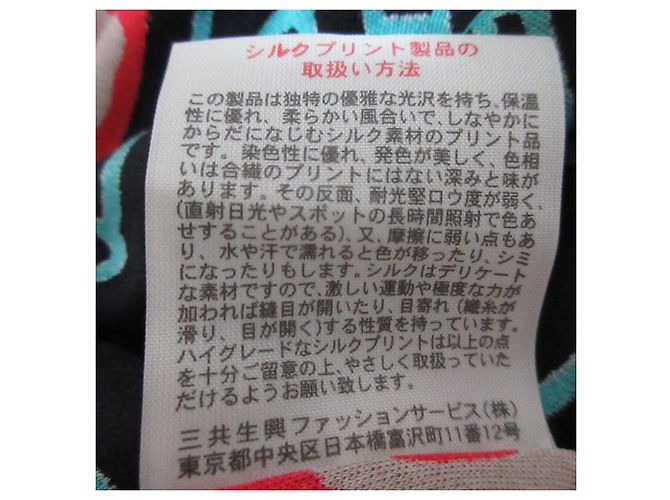 シルクプリント製品の
取扱い方法
この製品は独特の優雅な光沢を持ち、保温
性に優れ、柔らかい風合いで、しなやかに
からだになじむシルク素材のプリント品
です。染色性に優れ、発色が美しく、色相
いは合繊のプリントにはない深みと味が
あります。その反面、耐光堅ロウ度が弱く、
(直射日光やスポットの長時間照射で色あ
せすることがある)、又、摩擦に弱い点もあ
り、水や汗で濡れると色が移ったり、シミ
になったりもします。シルクはデリケート
な素材ですので、激しい運動や極度な力が
加われば縫目が開いたり、目寄れ(織糸が
滑り、目が開く)する性質を持っています。
ハイグレードなシルクプリントは以上の点
を十分ご留意の上、やさしく取扱っていた
だけるようお願い致します。
三共生興ファッションサービス(株)
東京都中央区日本橋富沢町11番12号